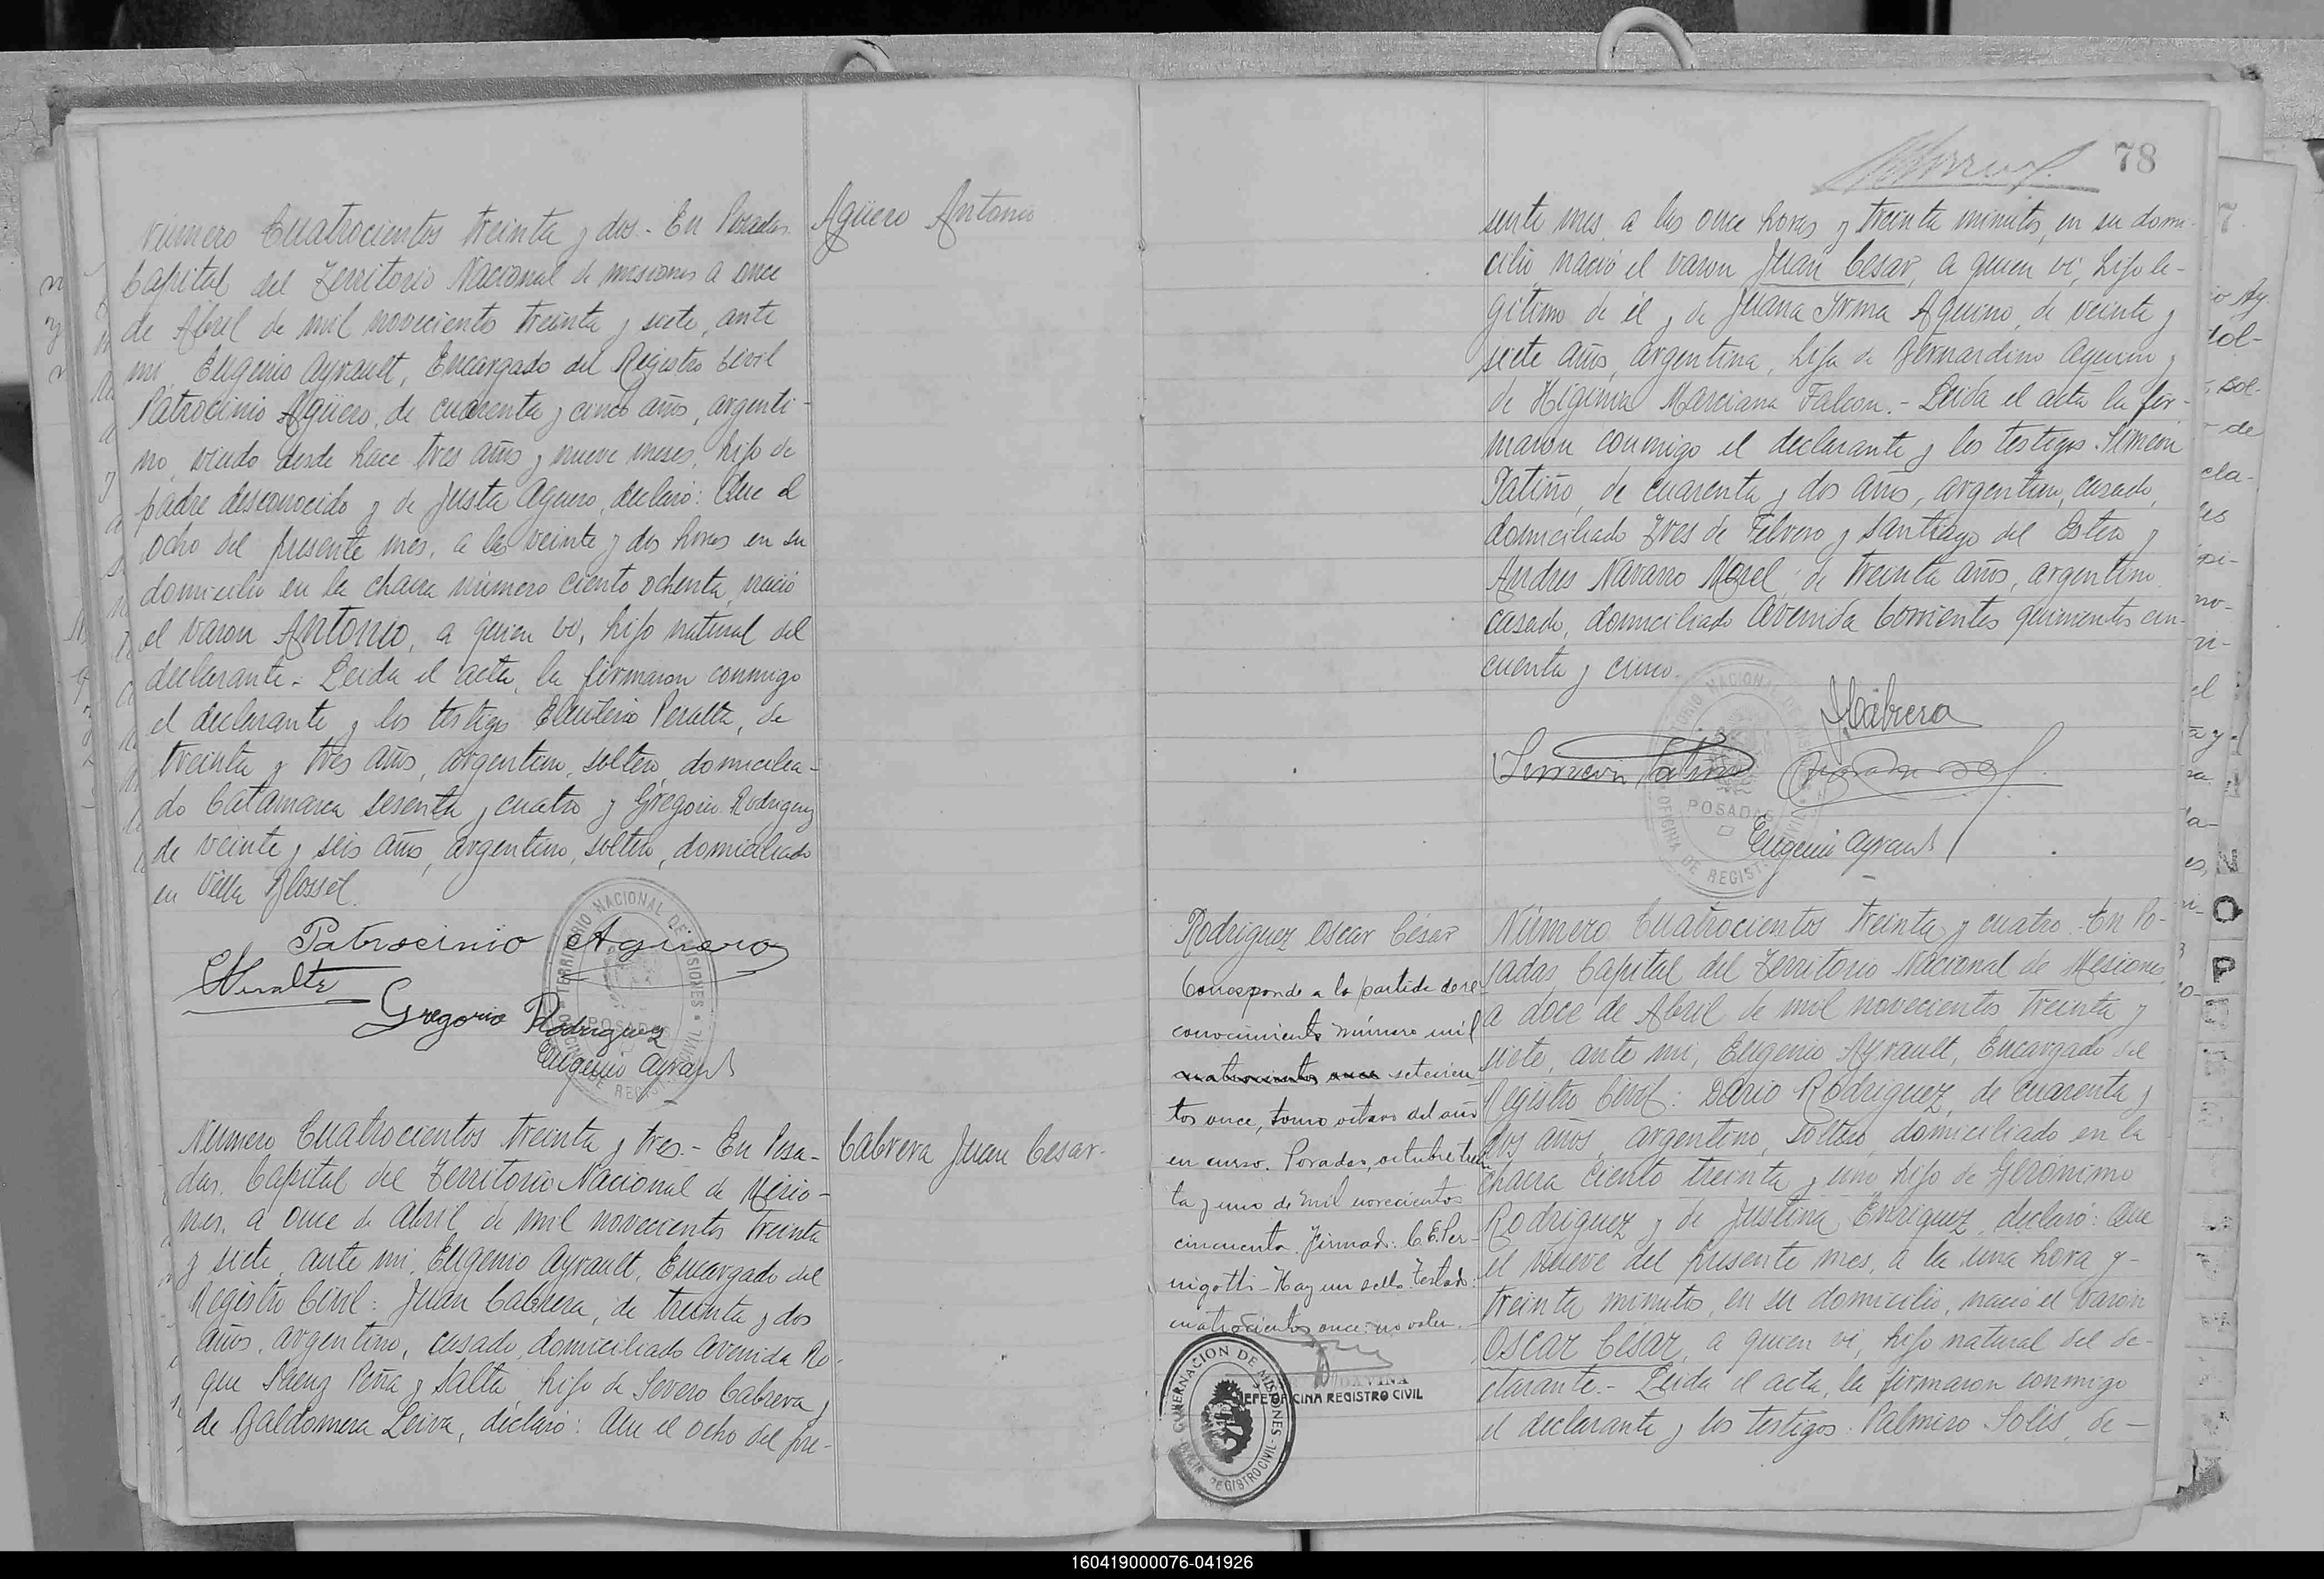 Número Cuatrocientos treinta y dos.- En Posadas
Capital del Territorio Nacional de Misiones a once
de Abril de mil novecientos treinta y siete, ante
mi, Eugenio Ayrault, Encargado del Registro Civil
Patrocinio Agüero, de cuarenta y cinco años, argenti-
no, viudo desde hace tres años y nueve meses, hijo de
padre desconocido y de Justa Aguero, declaró: Que el
ocho del presente mes, a las veinte y dos horas en su
domicilio en la chacra número ciento ochenta, nació
el varon Antonio, a quien vi, hijo natural del
declarante.- Leida el acta, la firmaron conmigo
el declarante y los testigos Eleuterio Peralta, de
treinta y tres años, argentino, soltero, domicilia-
do Catamarca sesenta y cuatro y Gregorio Rodriguez
de veinte y seis años, argentino, soltero, domiciliado
en Villa Blosset.
Agüero Antonio
Patrocinio Aguero
EPeralta
Gregorio Rodriguez
Eugenio Ayrault
TERRITORIO NACIONAL DE MISIONES
POSADAS
Número Cuatrocientos treinta y tres.- En Posa-
das, Capital del Territorio Nacional de Misio-
nes, a once de Abril de mil novecientos treinta
y siete, ante mi, Eugenio Ayrault, Encargado del
Registro Civil: Juan Cabrera, de treinta y dos
años, argentino, casado, domiciliado Avenida Ro-
que Saenz Peña y Salta, hijo de Severo Cabrera y
de Baldomera Leiva, declaró: Que el ocho del pre-
Cabrera Juan Cesar.-
78
sente mes, a las once horas y treinta minutos, en su domi-
cilio nació el varon Juan Cesar, a quien vi, hijo le-
gitimo de él y de Juana Irma Aquino, de veinte y
siete años, argentina, hija de Bernardino Aquino y
de Higinia Marciana Falcon.- Leida el acta la fir-
maron conmigo el declarante y los testigos Simeon
Patiño, de cuarenta y dos años, argentino, casado,
domiciliado Tres de Febrero y Santiago del Estero y
Andres Navarro Morel, de treinta años, argentino,
casado, domiciliado Avenida Corrientes quinientos cin-
cuenta y cinco.
JCabrera
Simeon Patiño
Eugenio Ayrault
TERRITORIO NACIONAL DE MISIONES
POSADAS
OFICINA DE REGISTRO CIVIL
Rodriguez Oscar César
Corresponde a la partida de re-
conocimiento número mil
cuatrocientos once setecien-
tos once, tomo octavo del año
en curso. Posadas, octubre trein-
ta y uno de mil novecientos
cincuenta. Firmado: C.E.Per-
nigotti - Hay un sello. Testado:
cuatrocientos once: no valen.
JEFE OFICINA REGISTRO CIVIL
GOBERNACION DE MISIONES
REGISTRO CIVIL
Número Cuatrocientos treinta y cuatro. En Po-
sadas, Capital del Territorio Nacional de Misiones,
a doce de Abril de mil novecientos treinta y
siete, ante mi, Eugenio Ayrault, Encargado del
Registro Civil: Dario Rodriguez, de cuarenta y
dos años, argentino, soltero, domiciliado en la
chacra ciento treinta y uno hijo de Gerónimo
Rodriguez y de Justina Enriquez, declaró: Que
el nueve del presente mes, a la una hora y-
treinta minutos, en su domicilio, nació el varón
Oscar César, a quien vi, hijo natural del de-
clarante.- Leida el acta, la firmaron conmigo
el declarante y los testigos: Palmiro Solis, de-
160419000076-041926